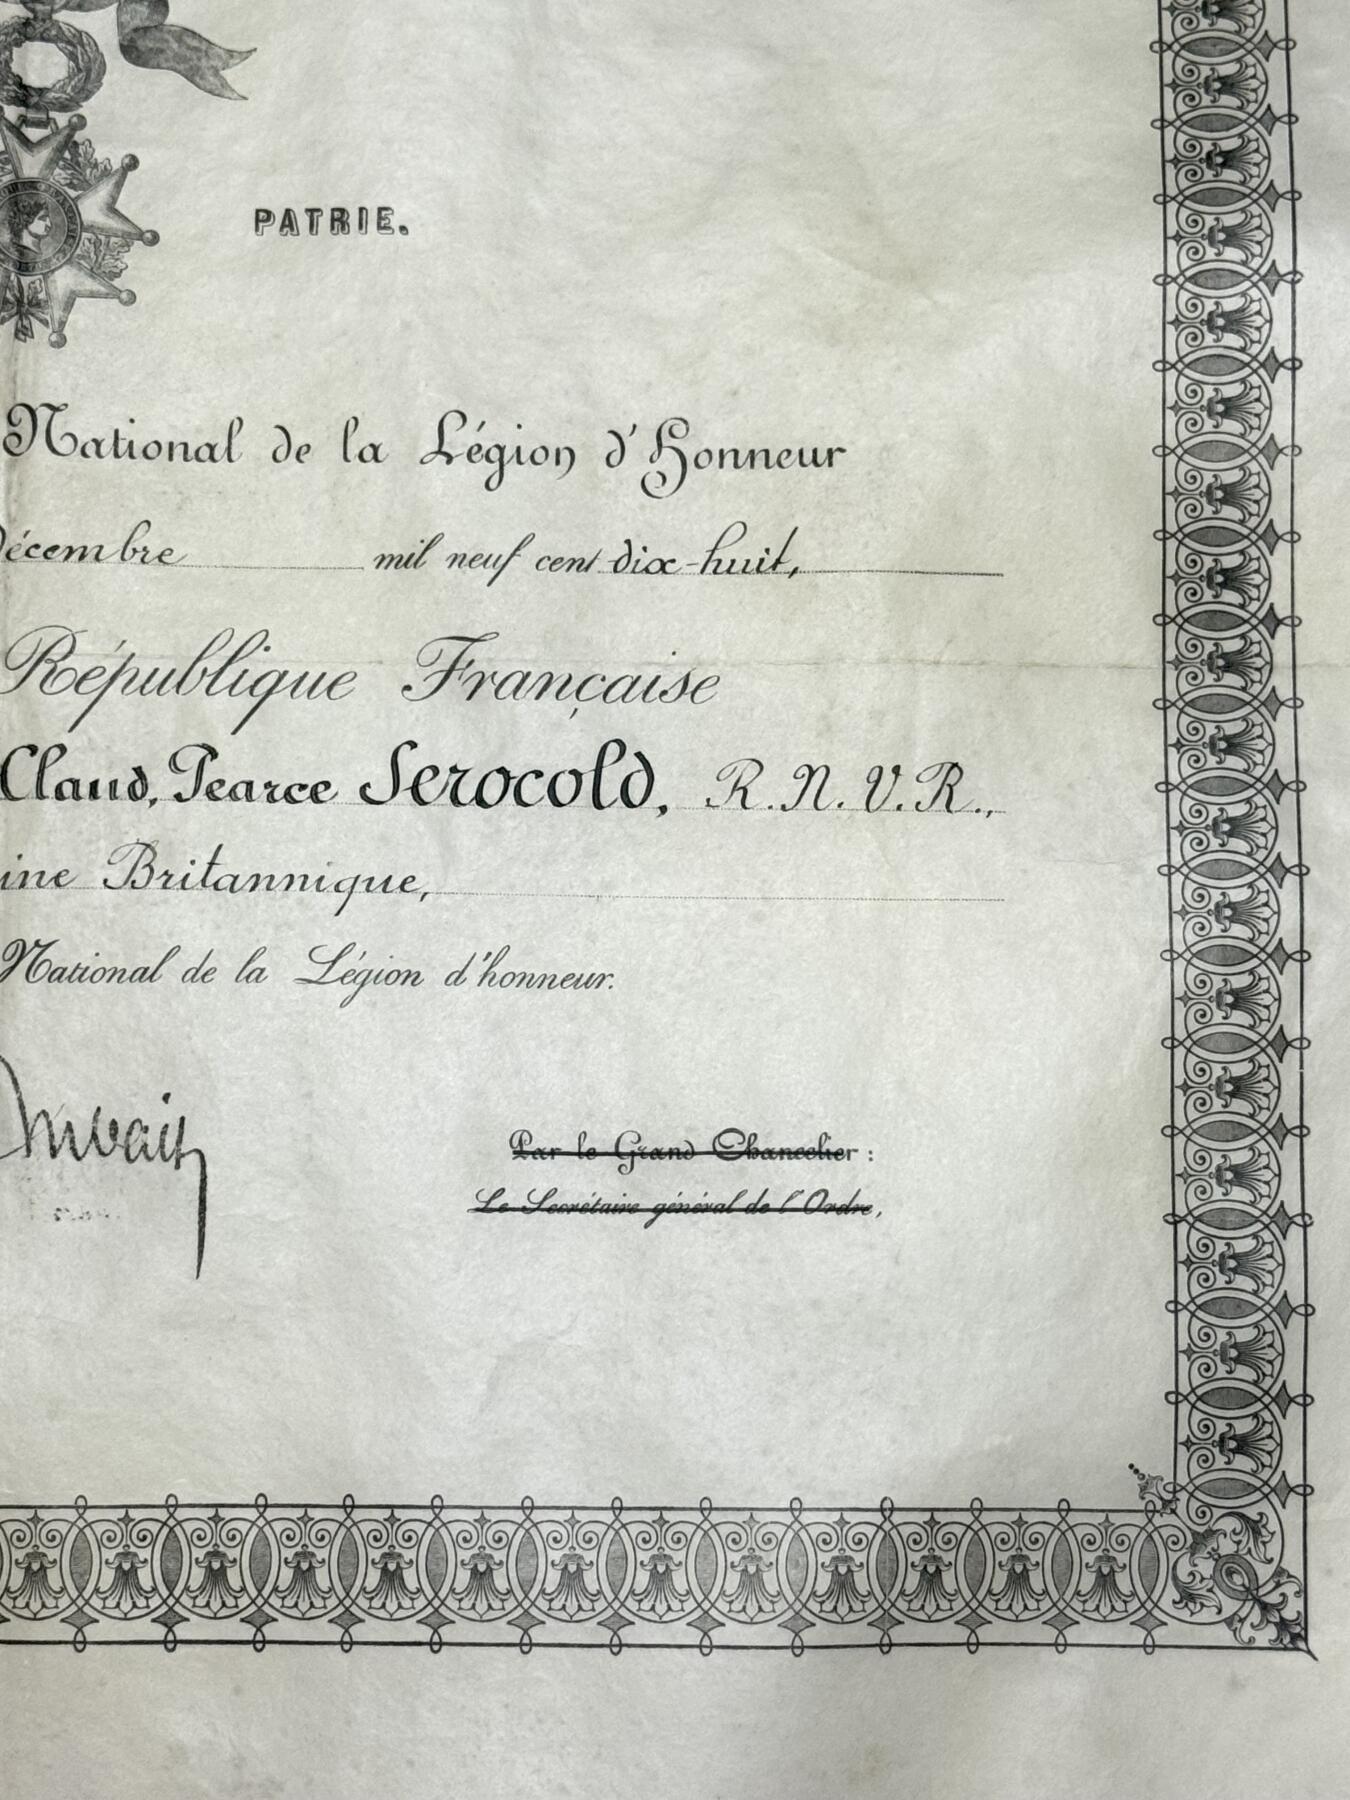 PATRIE.
National de la Légion d'Honneur
décembre mil neuf cent dix-huit,
République Française
Claud, Pearce Serocold, R.N.V.R.,
ine Britannique,
National de la Légion d'honneur.
Par le Grand Chancelier :
Le Secrétaire général de l'Ordre,